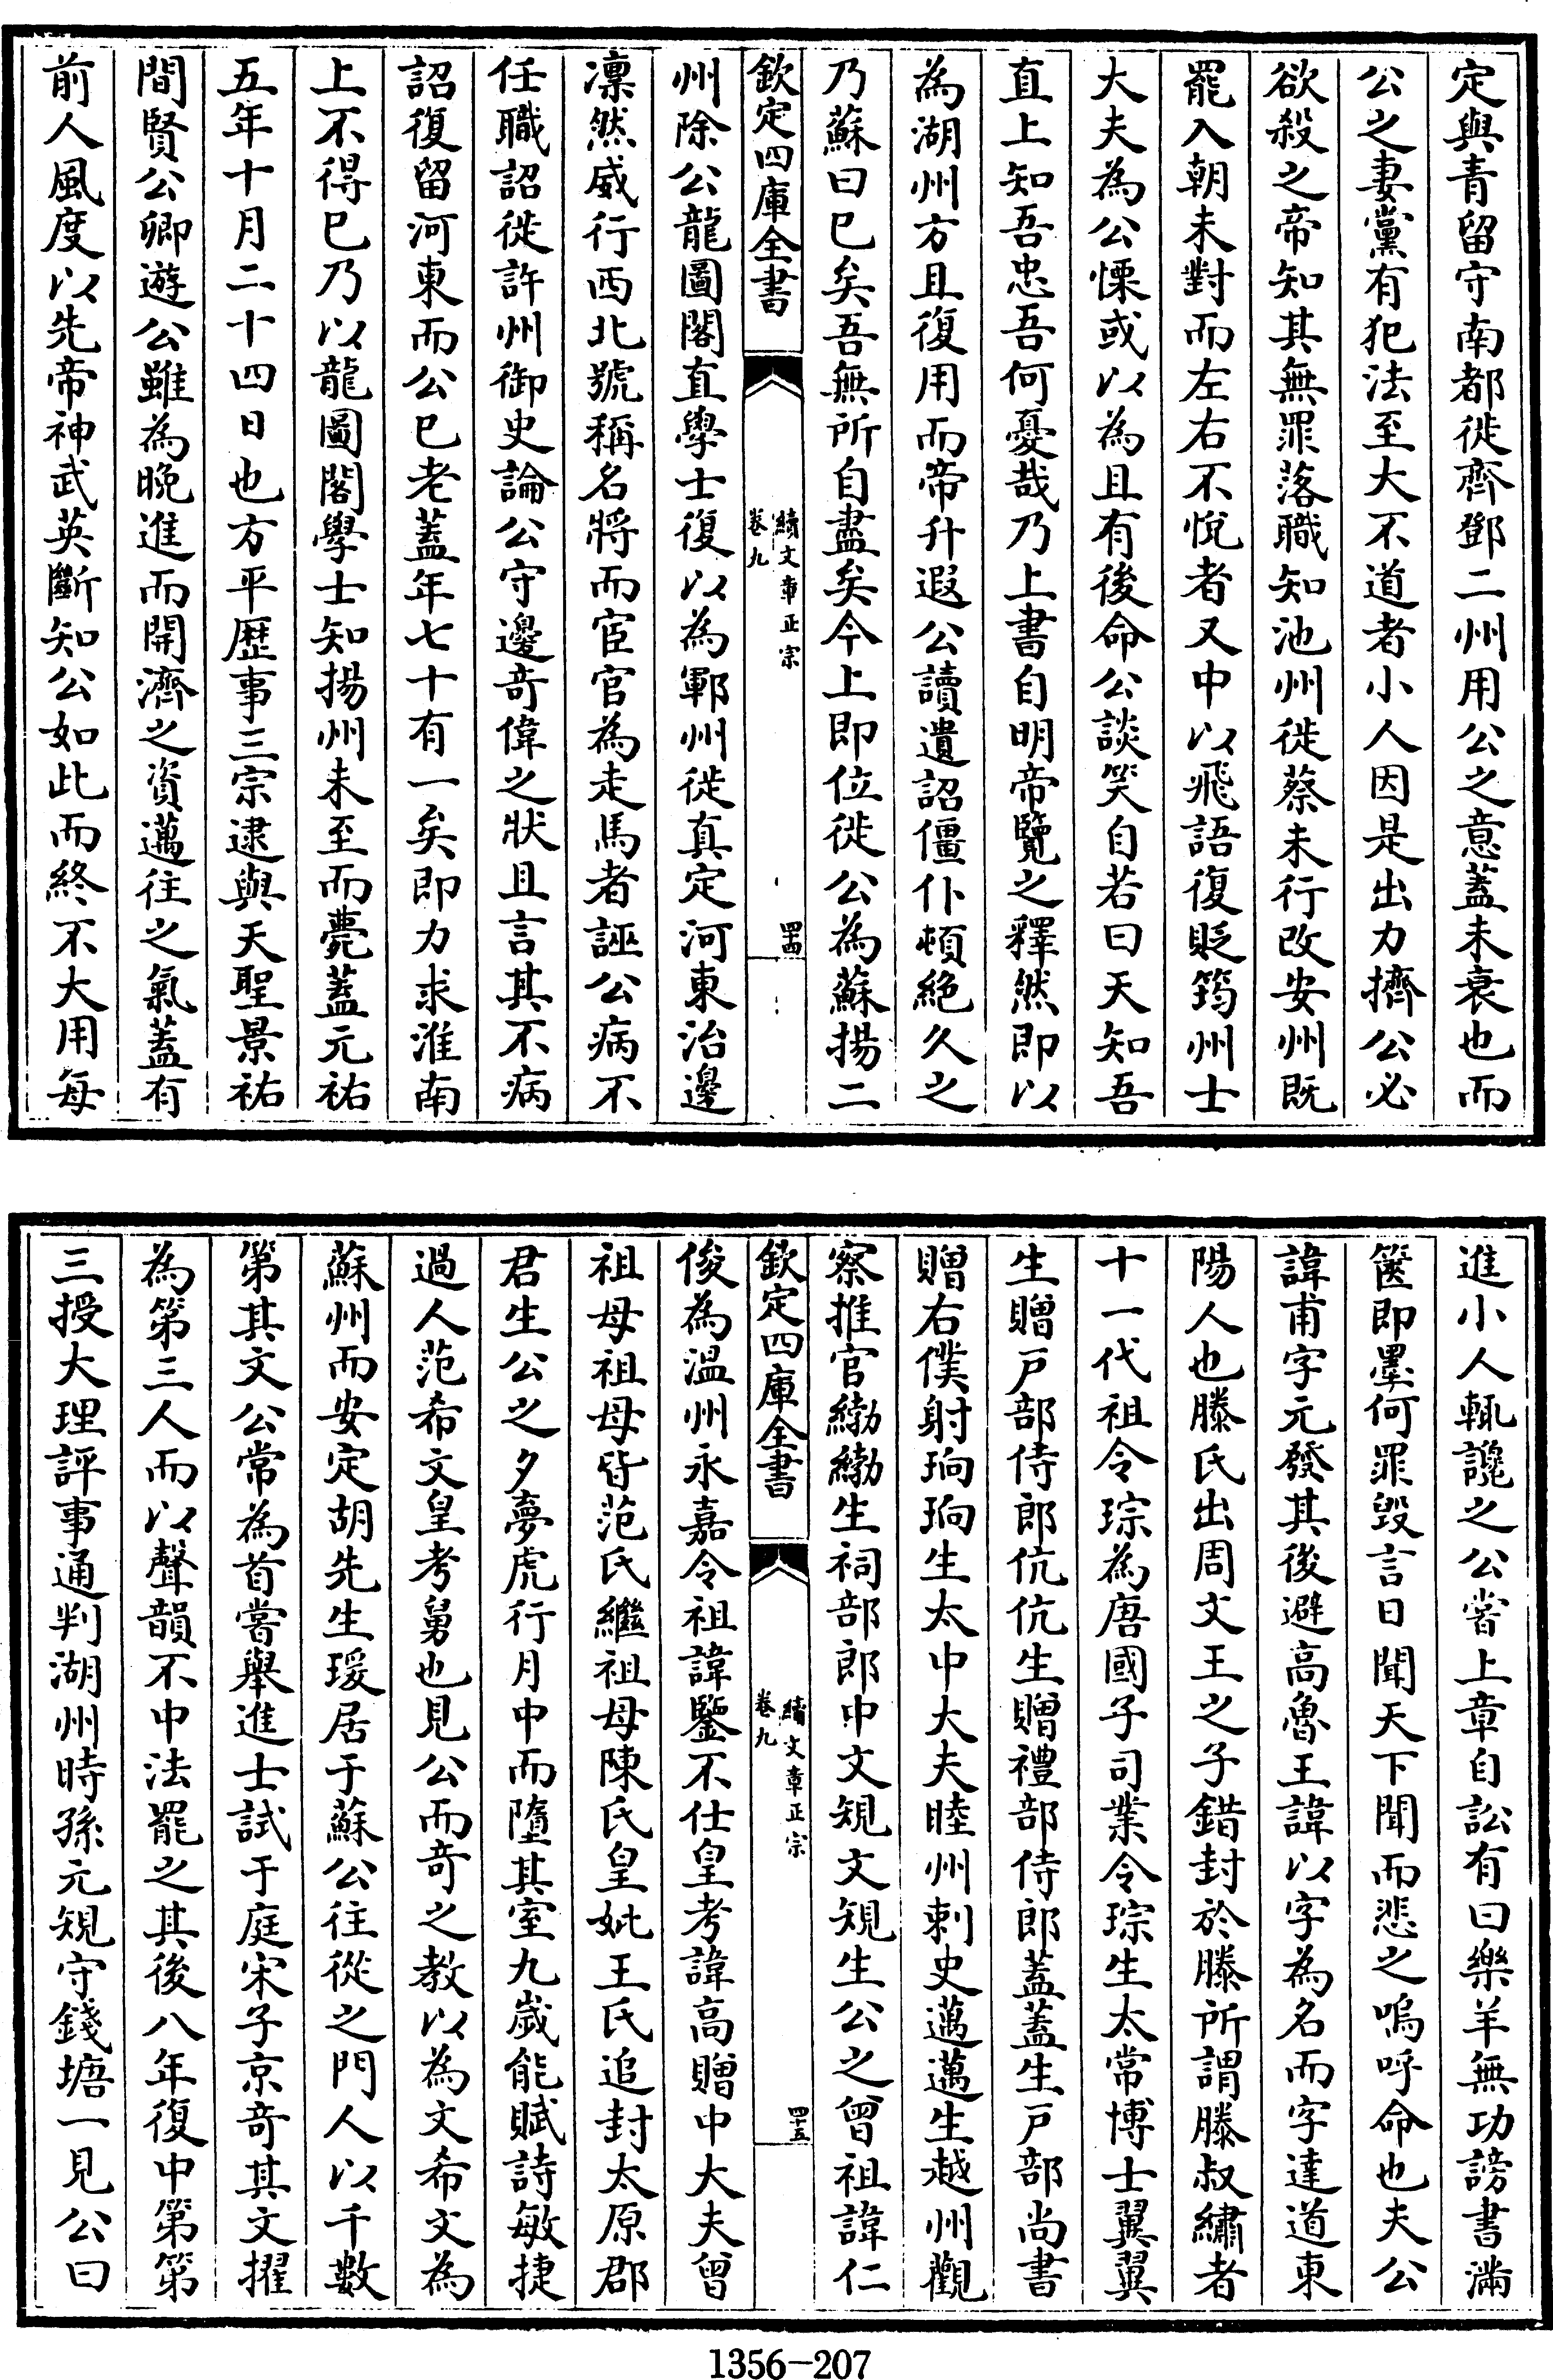 定與青留守南都徙齊鄧二州用公之意蓋未衰也而
公之妻黨有犯法至大不道者小人因是出力擠公必
欲殺之帝知其無罪落職知池州徙蔡未行改安州既
罷入朝未對而左右不悅者又中以飛語復貶筠州士
大夫為公慄或以為且有後命公談笑自若曰天知吾
直上知吾忠吾何憂哉乃上書自明帝覽之釋然即以
為湖州方且復用而帝升遐公讀遺詔僵仆頓絕久之
乃蘇曰已矣吾無所自盡矣今上即位徙公為蘇揚二
欽定四庫全書
續文章正宗
卷九
四十四
州除公龍圖閣直學士復以為鄆州徙真定河東治邊
凛然威行西北號稱名將而宦官為走馬者誣公病不
任職詔徙許州御史論公守邊奇偉之狀且言其不病
詔復留河東而公已老蓋年七十有一矣即力求淮南
上不得已乃以龍圖閣學士知揚州未至而薨蓋元祐
五年十月二十四日也方平歷事三宗逮與天聖景祐
間賢公卿遊公雖為晚進而開濟之資邁往之氣蓋有
前人風度以先帝神武英斷知公如此而終不大用每
進小人輒讒之公嘗上章自訟有曰樂羊無功謗書滿
篋即墨何罪毀言日聞天下聞而悲之嗚呼命也夫公
諱甫字元發其後避高魯王諱以字為名而字達道東
陽人也滕氏出周文王之子錯封於滕所謂滕叔繡者
十一代祖令琮為唐國子司業令琮生太常博士翼翼
生贈戸部侍郎伉伉生贈禮部侍郎蓋蓋生戸部尚書
贈右僕射珦珦生太中大夫睦州刺史邁邁生越州觀
察推官緲緲生祠部郎中文規文規生公之曾祖諱仁
欽定四庫全書
續文章正宗
卷九
四十五
俊為溫州永嘉令祖諱鑒不仕皇考諱高贈中大夫曾
祖母祖母皆范氏繼祖母陳氏皇妣王氏追封太原郡
君生公之夕夢虎行月中而墮其室九歲能賦詩敏捷
過人范希文皇考舅也見公而奇之教以為文希文為
蘇州而安定胡先生瑗居于蘇公往從之門人以千數
第其文公常為首嘗舉進士試于庭宋子京奇其文擢
為第三人而以聲韻不中法罷之其後八年復中第第
三授大理評事通判湖州時孫元規守錢塘一見公曰
1356-207